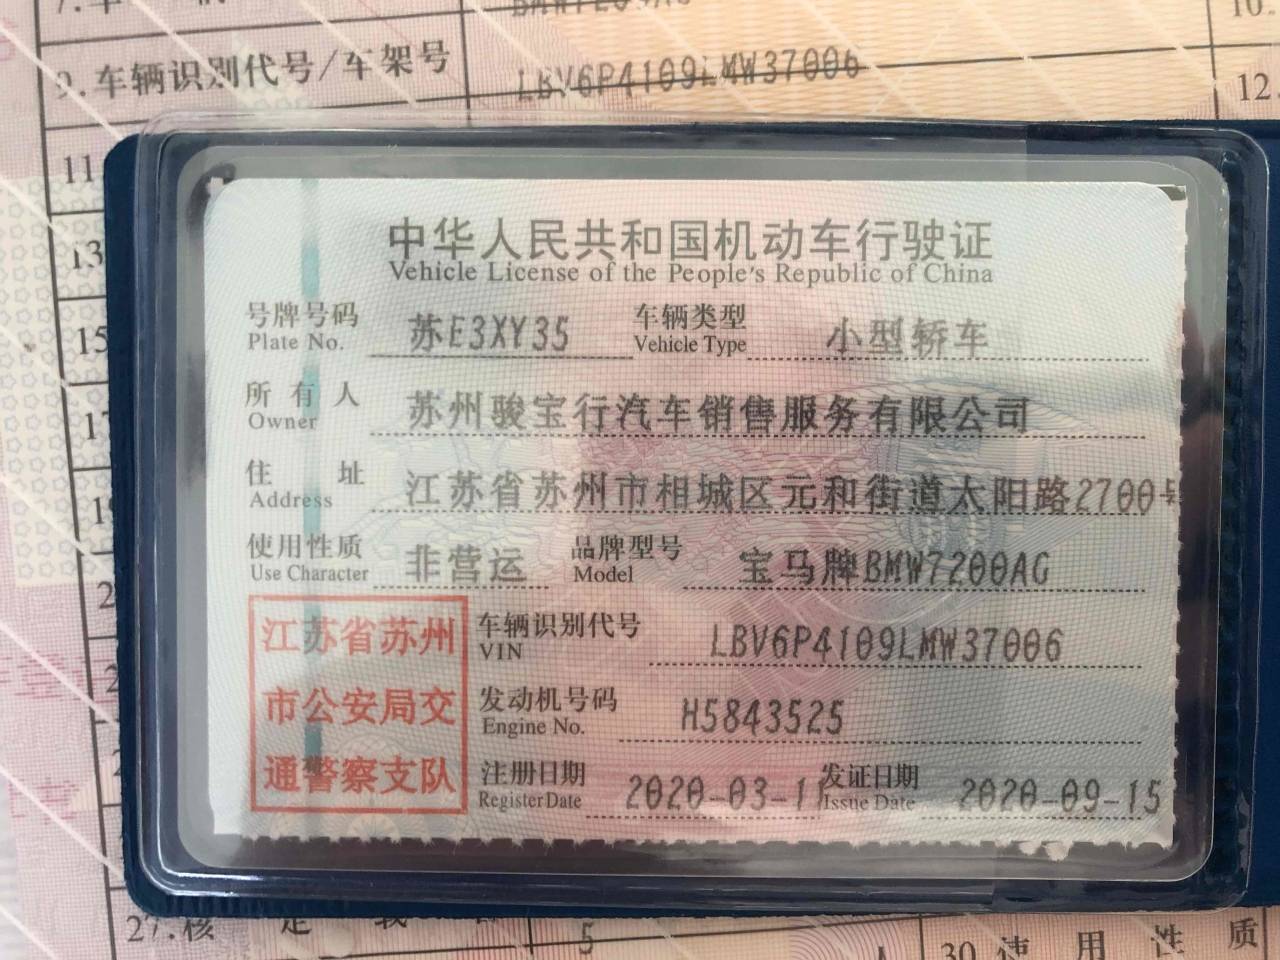 9.车辆识别代号/车架号 LBV6P4109LMW37006
12.
11
13
15
中华人民共和国机动车行驶证
Vehicle License of the People's Republic of China
号牌号码 苏E3XY35 车辆类型 小型轿车
Plate No. Vehicle Type
所有人 苏州骏宝行汽车销售服务有限公司
Owner
住址 江苏省苏州市相城区元和街道太阳路2700号
Address
使用性质 非营运 品牌型号 宝马牌BMW7200AG
Use Character Model
江苏省苏州
市公安局交
通警察支队
车辆识别代号 LBV6P4109LMW37006
VIN
发动机号码 H5843525
Engine No.
注册日期 2020-03-11 发证日期 2020-09-15
Register Date Issue Date
27.核定载 5 人 30.使用性质